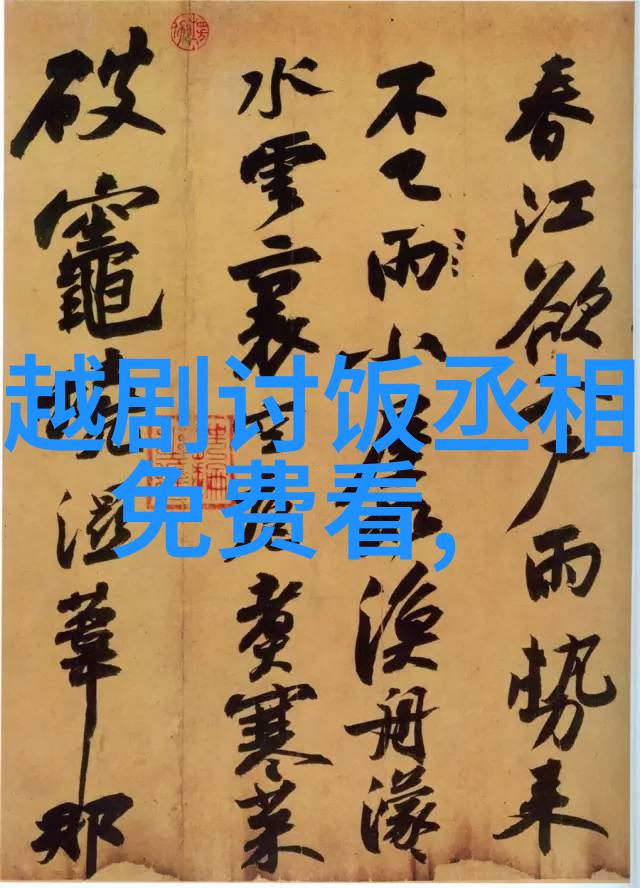 春江欲入户雨势来
不已雨小屋如漁舟濛
水雲裏空庖煑寒菜
破竈燒濕葦那
越剧讨饭丞相
免费看,